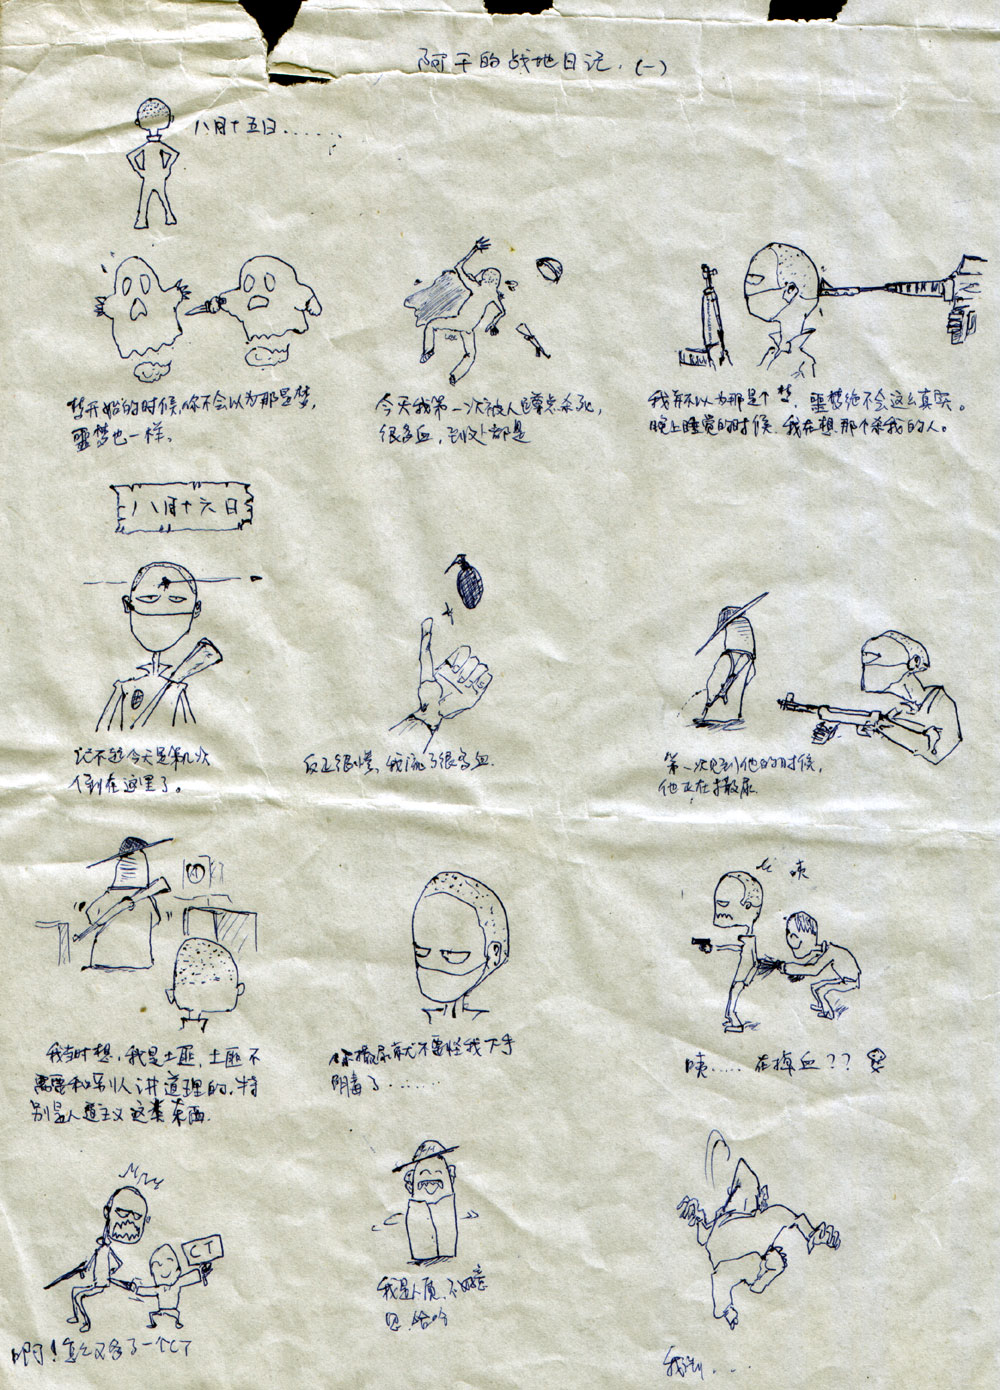 阿干的战地日记.(一)
八月十五日......
梦开始的时候,你不会以为那是梦,
噩梦也一样。
今天我第一次被人瞄点杀死,
很多血,到处都是
我并不以为那是个梦,噩梦绝不会这么真实。
晚上睡觉的时候,我在想那个杀我的人。
八月十六日
记不起今天是第几次
倒在这里了。
反正很惨,我流了很多血.
第一次见到他的时候,
他正在撒尿.
我当时想,我是土匪,土匪不
需要和别人讲道理的,特
别是人道主义这类东西.
你撒尿就不要怪我下手
阴毒了.......
咦
咦..... 在掉血??
CT
啊!怎么又多了一个CT
我是人质,不好意
思,哈哈
我倒...